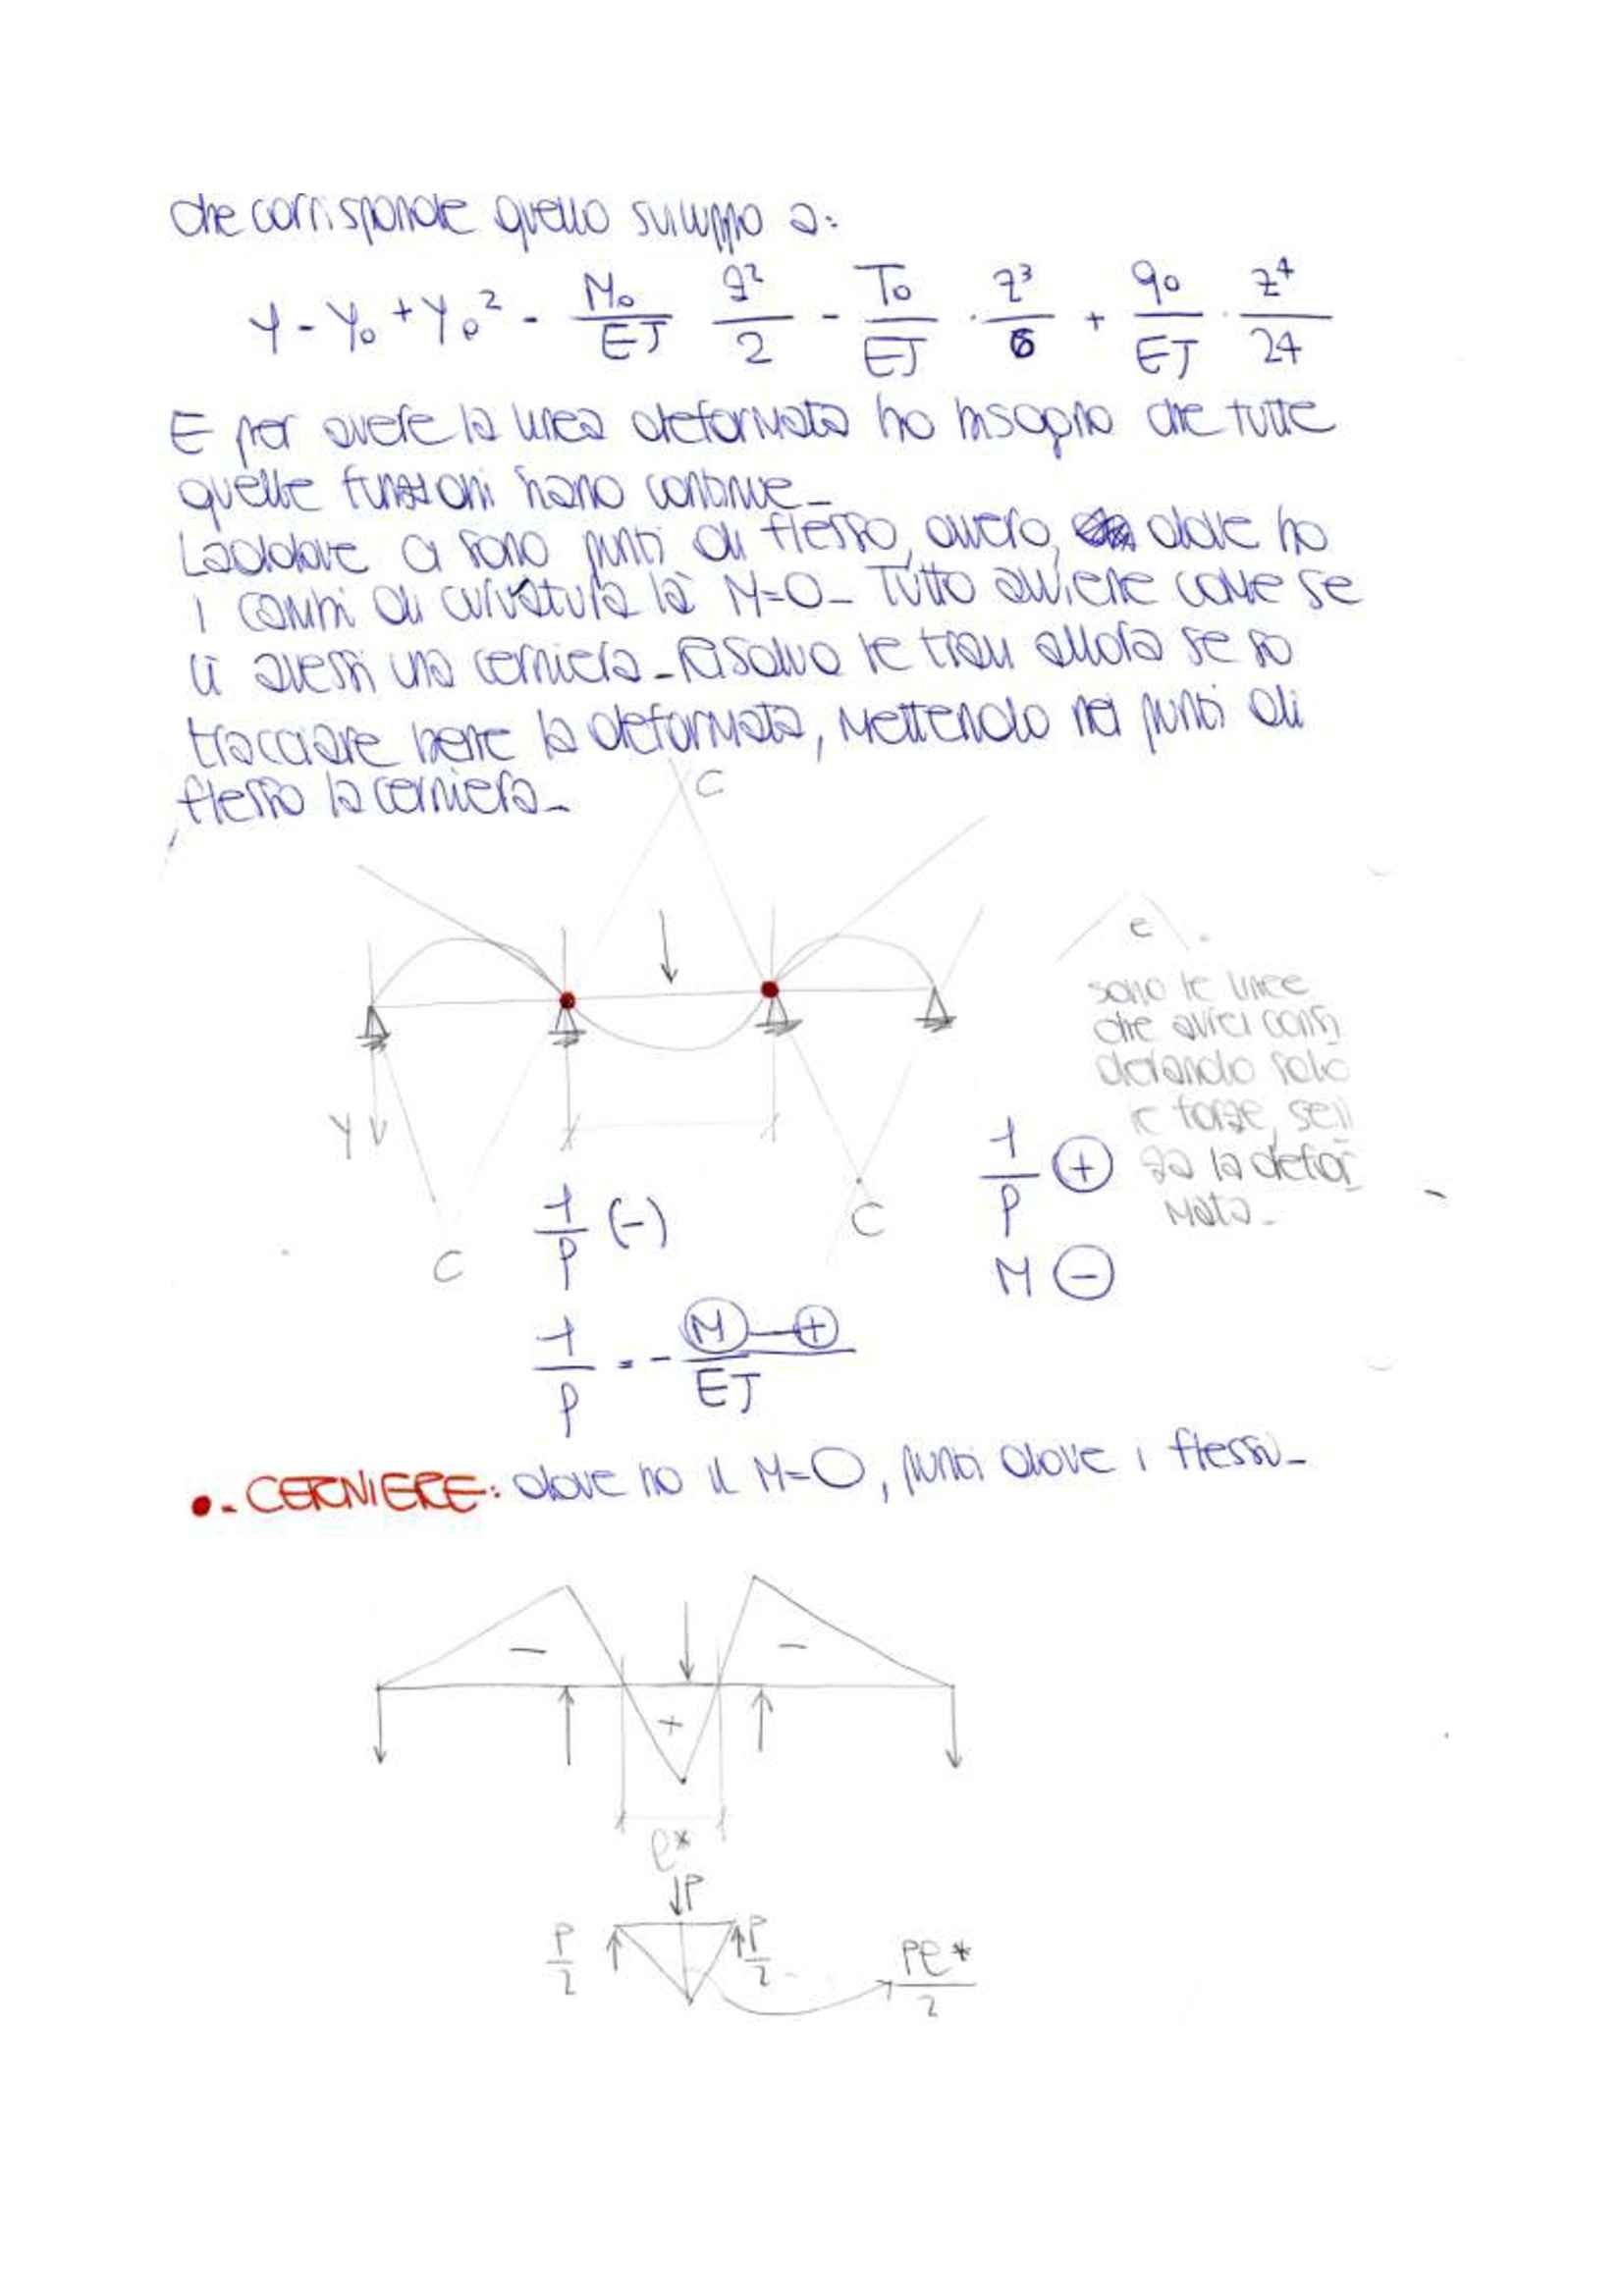 che corrisponde quello sviluppo a:
y - y₀ + y₀² - M₀/EJ z²/2 - T₀/EJ · z³/6 + q₀/EJ · z⁴/24
E per avere la linea deformata ho bisogno che tutte
quelle funzioni siano continue_
Laddove ci sono punti di flesso, ovvero, dove ho
i cambi di curvatura là M=0_ Tutto avviene come se
lì avessi una cerniera_ Risolvo le travi allora se so
tracciare bene la deformata, mettendo nei punti di
flesso la cerniera_
C
e
sono le linee
che avrei consi
derando solo
le forze, sen
za la defor
mata_
Y
C
C
1/ρ (-)
1/ρ (+)
M (-)
1/ρ = - M (+)/EJ
•- CERNIERE: dove ho il M=0, punti dove i flessi_
-
-
+
ℓ*
P
P/2
P/2
Pℓ*/2